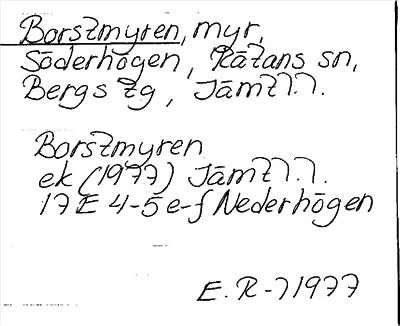 Borstmyren, myr,
Söderhögen, Rätans sn,
Bergs tg, Jämtl.
Borstmyren
ek (1977) Jämtl.
17E 4-5 e-f Nederhögen
E. R-l 1977